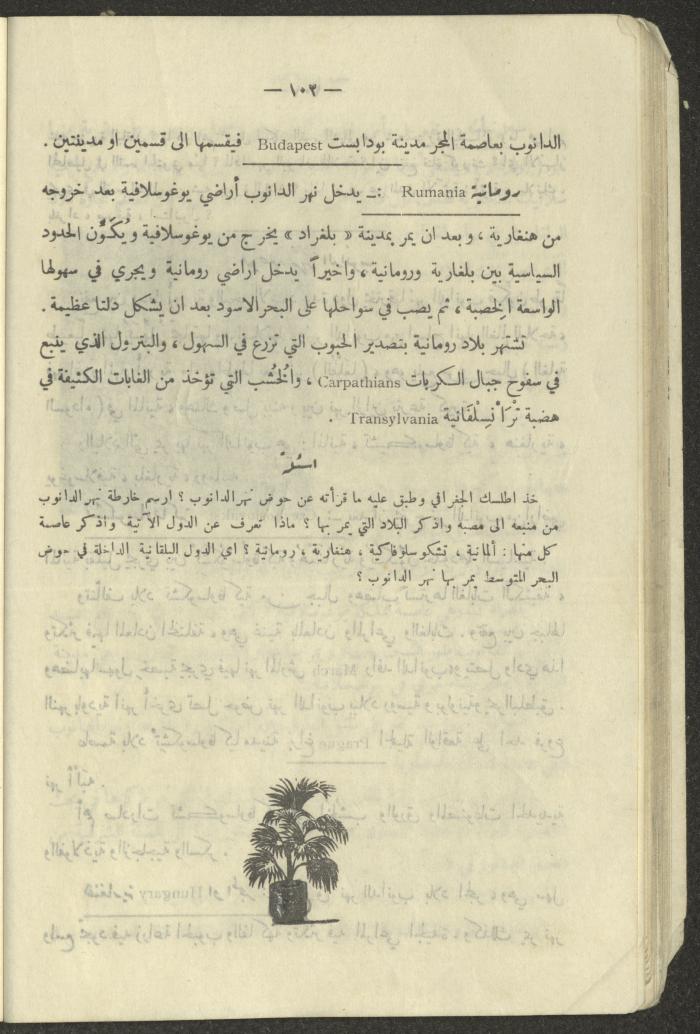 — ١٠٢ —
الدانوب بعاصمة المجر مدينة بودابست Budapest فيقسمها الى قسمين او مدينتين .
رومانية Rumania :ـ يدخل نهر الدانوب أراضي يوغوسلافية بعد خروجه
من هنغارية ، وبعد ان يمر بمدينة « بلغراد » يخرج من يوغوسلافية ويُكَوِّن الحدود
السياسية بين بلغارية ورومانية ، واخيراً يدخل اراضي رومانية ويجري في سهولها
الواسعة الخصبة ، ثم يصب في سواحلها على البحر الاسود بعد ان يشكل دلتا عظيمة .
تشتهر بلاد رومانية بتصدير الحبوب التي تزرع في السهول ، والبترول الذي ينبع
في سفوح جبال الكربات Carpathians ، والخُشب التي تؤخذ من الغابات الكثيفة في
هضبة تْرَانْسِلْفَانية Transylvania .
اسئلة
خذ اطلسك الجغرافي وطبق عليه ما قرأته عن حوض نهر الدانوب ؟ ارسم خارطة نهر الدانوب
من منبعه الى مصبه واذكر البلاد التي يمر بها ؟ ماذا تعرف عن الدول الآتية واذكر عاصمة
كل منها : ألمانية ، تشكوسلوفاكية ، هنغارية ، رومانية ؟ اي الدول البلقانية الداخلة في حوض
البحر المتوسط يمر بها نهر الدانوب ؟